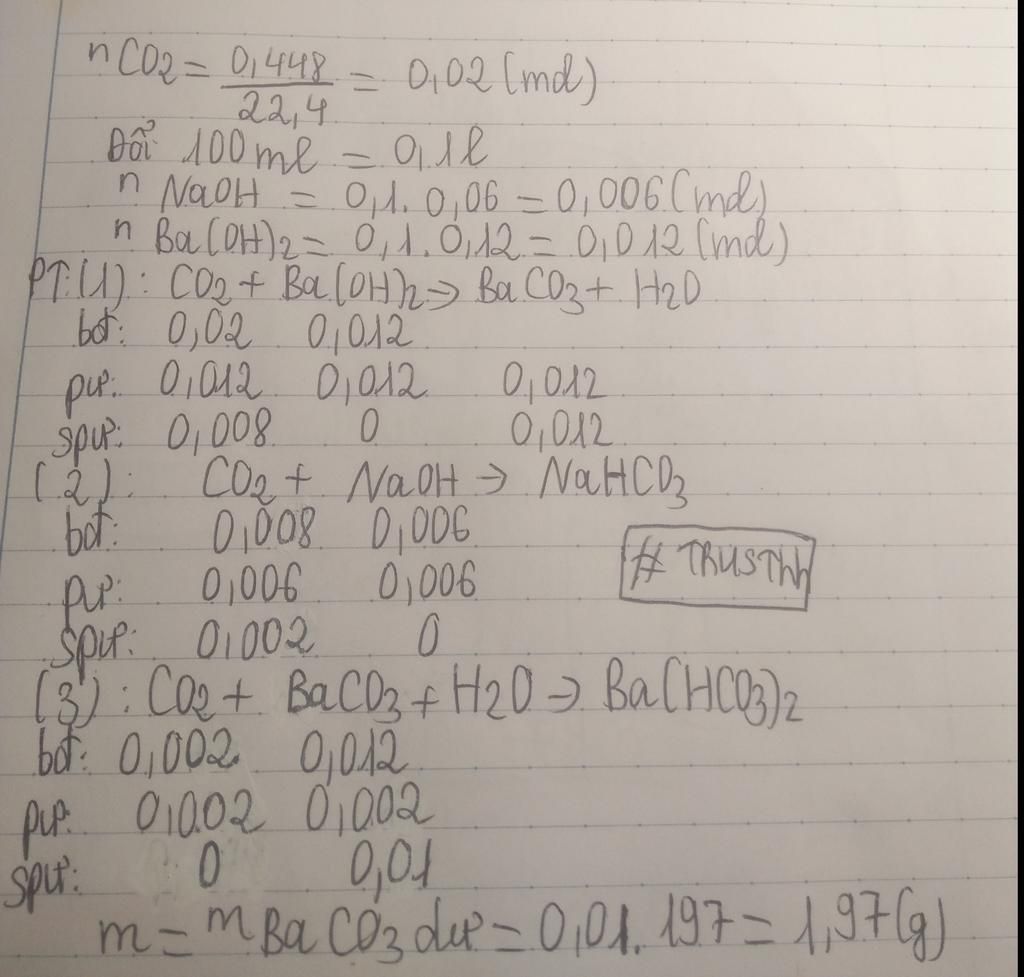 nCO2 = 0,448 / 22,4 = 0,02 (mol)
Đổi 100ml = 0,1l
n NaOH = 0,1. 0,06 = 0,006 (mol)
n Ba(OH)2 = 0,1. 0,12 = 0,012 (mol)
PT:(1): CO2 + Ba(OH)2 → BaCO3 + H2O
bđ: 0,02 0,012
pư: 0,012 0,012 0,012
spư: 0,008 0 0,012
(2): CO2 + NaOH → NaHCO3
bđ: 0,008 0,006
pư: 0,006 0,006
# TRUSThh
spư: 0,002 0
(3): CO2 + BaCO3 + H2O → Ba(HCO3)2
bđ: 0,002 0,012
pư: 0,002 0,002
spư: 0 0,01
m = mBaCO3 dư = 0,01. 197 = 1,97 (g)